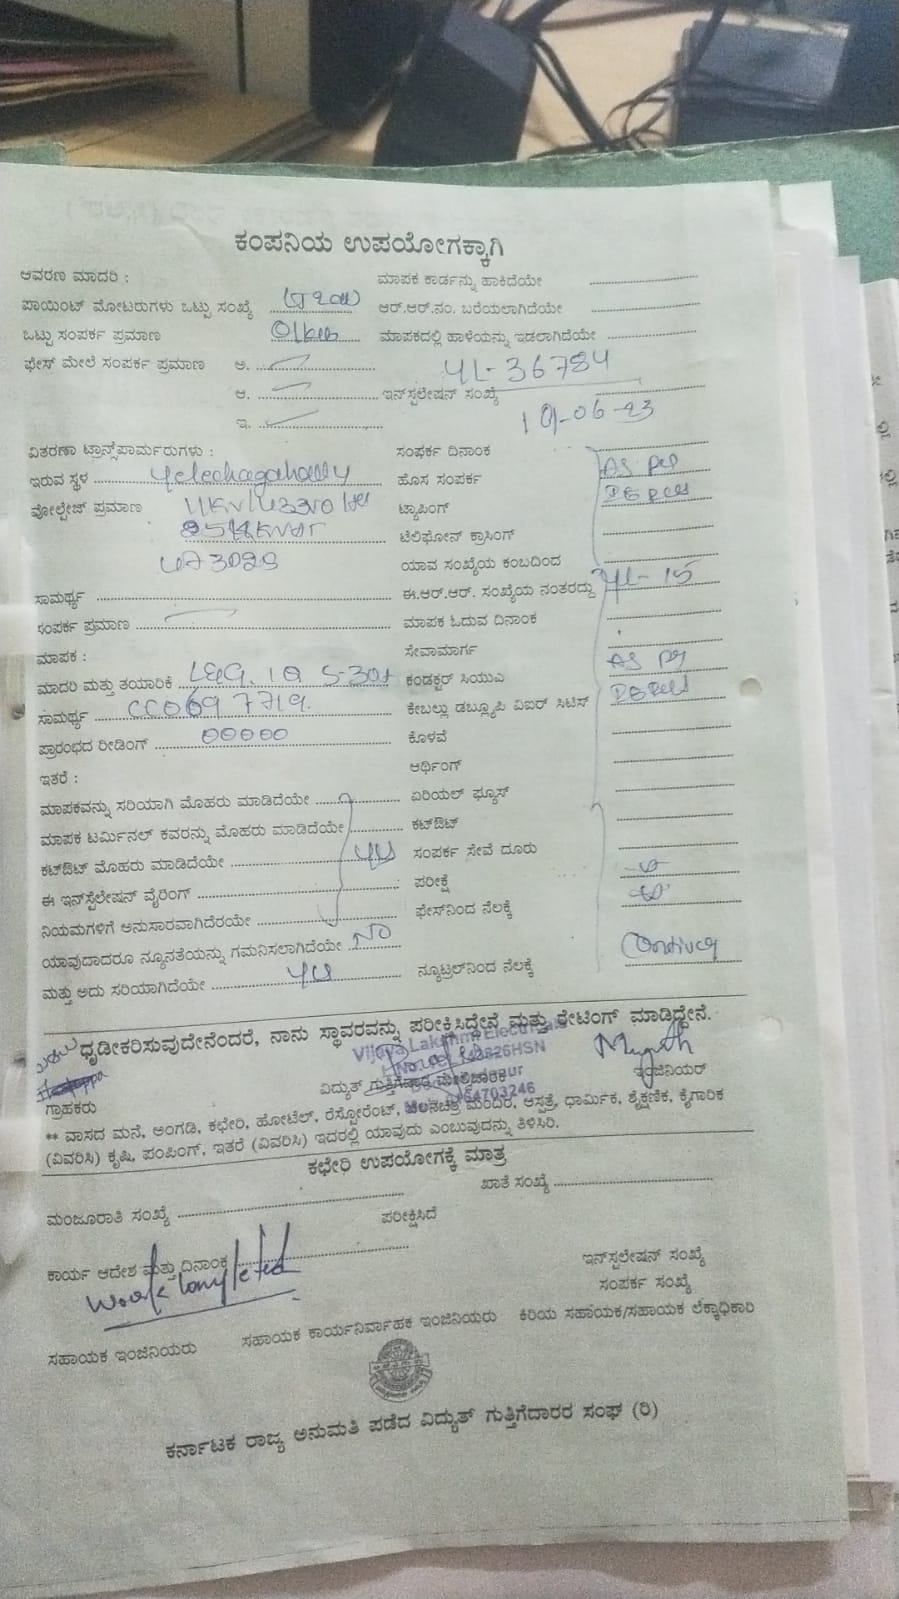 ಕಂಪನಿಯ ಉಪಯೋಗಕ್ಕಾಗಿ
ಆವರಣ ಮಾದರಿ :
ಮಾಪಕ ಕಾರ್ಡನ್ನು ಹಾಕಿದೆಯೇ
ಪಾಯಿಂಟ್ ಮೋಟರುಗಳು ಒಟ್ಟು ಸಂಖ್ಯೆ
ಆರ್.ಆರ್.ನಂ. ಬರೆಯಲಾಗಿದೆಯೇ
ಒಟ್ಟು ಸಂಪರ್ಕ ಪ್ರಮಾಣ
ಮಾಪಕದಲ್ಲಿ ಹಾಳೆಯನ್ನು ಇಡಲಾಗಿದೆಯೇ
ಫೇಸ್ ಮೇಲೆ ಸಂಪರ್ಕ ಪ್ರಮಾಣ ಅ.
YL-36784
ಆ.
ಇನ್‌ಸ್ಟಲೇಷನ್ ಸಂಖ್ಯೆ
ಇ.
19-06-23
ವಿತರಣಾ ಟ್ರಾನ್ಸ್‌ಪಾರ್ಮರುಗಳು :
ಸಂಪರ್ಕ ದಿನಾಂಕ
ಇರುವ ಸ್ಥಳ Yelechagahally
ಹೊಸ ಸಂಪರ್ಕ As per
ವೋಲ್ಟೇಜ್ ಪ್ರಮಾಣ
ಟ್ಯಾಪಿಂಗ್
ಟೆಲಿಫೋನ್ ಕ್ರಾಸಿಂಗ್
ಯಾವ ಸಂಖ್ಯೆಯ ಕಂಬದಿಂದ
ಸಾಮರ್ಥ್ಯ
ಈ.ಆರ್.ಆರ್. ಸಂಖ್ಯೆಯ ನಂತರದ್ದು YL-15
ಸಂಪರ್ಕ ಪ್ರಮಾಣ
ಮಾಪಕ ಓದುವ ದಿನಾಂಕ
ಮಾಪಕ :
ಸೇವಾಮಾರ್ಗ
ಮಾದರಿ ಮತ್ತು ತಯಾರಿಕೆ
ಕಂಡಕ್ಟರ್ ಸಿಯುಎ As per
ಸಾಮರ್ಥ್ಯ
ಕೇಬಲ್ಲು ಡಬ್ಲ್ಯೂಪಿ ವಿಐರ್ ಸಿಟಿಸ್
ಪ್ರಾರಂಭದ ರೀಡಿಂಗ್ 00000
ಕೊಳವೆ
ಇತರೆ :
ಆರ್ಥಿಂಗ್
ಮಾಪಕವನ್ನು ಸರಿಯಾಗಿ ಮೊಹರು ಮಾಡಿದೆಯೇ
ಏರಿಯಲ್ ಫ್ಯೂಸ್
ಮಾಪಕ ಟರ್ಮಿನಲ್ ಕವರನ್ನು ಮೊಹರು ಮಾಡಿದೆಯೇ
ಕಟ್‌ಔಟ್
ಕಟ್‌ಔಟ್ ಮೊಹರು ಮಾಡಿದೆಯೇ Yes
ಸಂಪರ್ಕ ಸೇವೆ ದೂರು
ಈ ಇನ್‌ಸ್ಟಲೇಷನ್ ವೈರಿಂಗ್
ಪರೀಕ್ಷೆ
ನಿಯಮಗಳಿಗೆ ಅನುಸಾರವಾಗಿದೆರಯೇ
ಫೇಸ್‌ನಿಂದ ನೆಲಕ್ಕೆ
ಯಾವುದಾದರೂ ನ್ಯೂನತೆಯನ್ನು ಗಮನಿಸಲಾಗಿದೆಯೇ NO
ಮತ್ತು ಅದು ಸರಿಯಾಗಿದೆಯೇ Yes
ನ್ಯೂಟ್ರಲ್‌ನಿಂದ ನೆಲಕ್ಕೆ
ಧೃಡೀಕರಿಸುವುದೇನೆಂದರೆ, ನಾನು ಸ್ಥಾವರವನ್ನು ಪರೀಕ್ಷಿಸಿದ್ದೇನೆ ಮತ್ತು ರೇಟಿಂಗ್ ಮಾಡಿದ್ದೇನೆ.
Vijaya Lakshmi Electricals
ಗ್ರಾಹಕರು
ವಿದ್ಯುತ್ ಗುತ್ತಿಗೆದಾರ
ಇಂಜಿನಿಯರ್
** ವಾಸದ ಮನೆ, ಅಂಗಡಿ, ಕಛೇರಿ, ಹೋಟೆಲ್, ರೆಸ್ಟೋರೆಂಟ್, ಚಲನಚಿತ್ರ ಮಂದಿರ, ಆಸ್ಪತ್ರೆ, ಧಾರ್ಮಿಕ, ಶೈಕ್ಷಣಿಕ, ಕೈಗಾರಿಕ
(ವಿವರಿಸಿ) ಕೃಷಿ, ಪಂಪಿಂಗ್, ಇತರೆ (ವಿವರಿಸಿ) ಇದರಲ್ಲಿ ಯಾವುದು ಎಂಬುವುದನ್ನು ತಿಳಿಸಿರಿ.
ಕಛೇರಿ ಉಪಯೋಗಕ್ಕೆ ಮಾತ್ರ
ಮಂಜೂರಾತಿ ಸಂಖ್ಯೆ
ಖಾತೆ ಸಂಖ್ಯೆ
ಪರೀಕ್ಷಿಸಿದೆ
ಕಾರ್ಯ ಆದೇಶ ಮತ್ತು ದಿನಾಂಕ
ಇನ್‌ಸ್ಟಲೇಷನ್ ಸಂಖ್ಯೆ
work completed
ಸಂಪರ್ಕ ಸಂಖ್ಯೆ
ಸಹಾಯಕ ಇಂಜಿನಿಯರು
ಸಹಾಯಕ ಕಾರ್ಯನಿರ್ವಾಹಕ ಇಂಜಿನಿಯರು
ಕಿರಿಯ ಸಹಾಯಕ/ಸಹಾಯಕ ಲೆಕ್ಕಾಧಿಕಾರಿ
ಕರ್ನಾಟಕ ರಾಜ್ಯ ಅನುಮತಿ ಪಡೆದ ವಿದ್ಯುತ್ ಗುತ್ತಿಗೆದಾರರ ಸಂಘ (ರಿ)